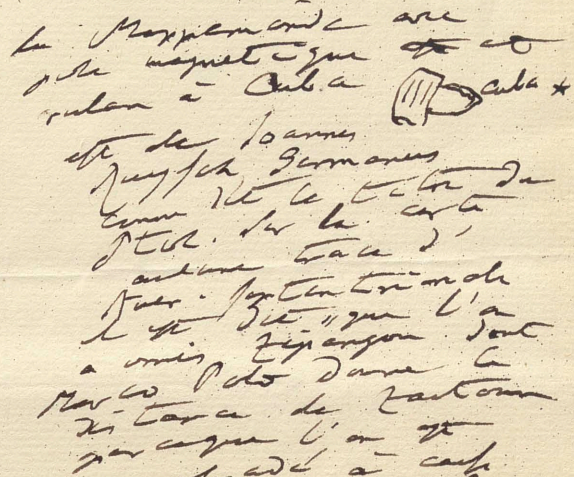 La Mappemonde avec
pole magnetique et
ruban à Cuba
Cuba *
est de Joannes
Ruysch Germanus
comme dit le titre du
Ptol. Sur la carte
aucune trace d'
Amer. septentrionale
il est dit "que l'on
a omis Zipangou dont
Marco Polo donne la
distance de Zaitoun
parceque l'on est
à